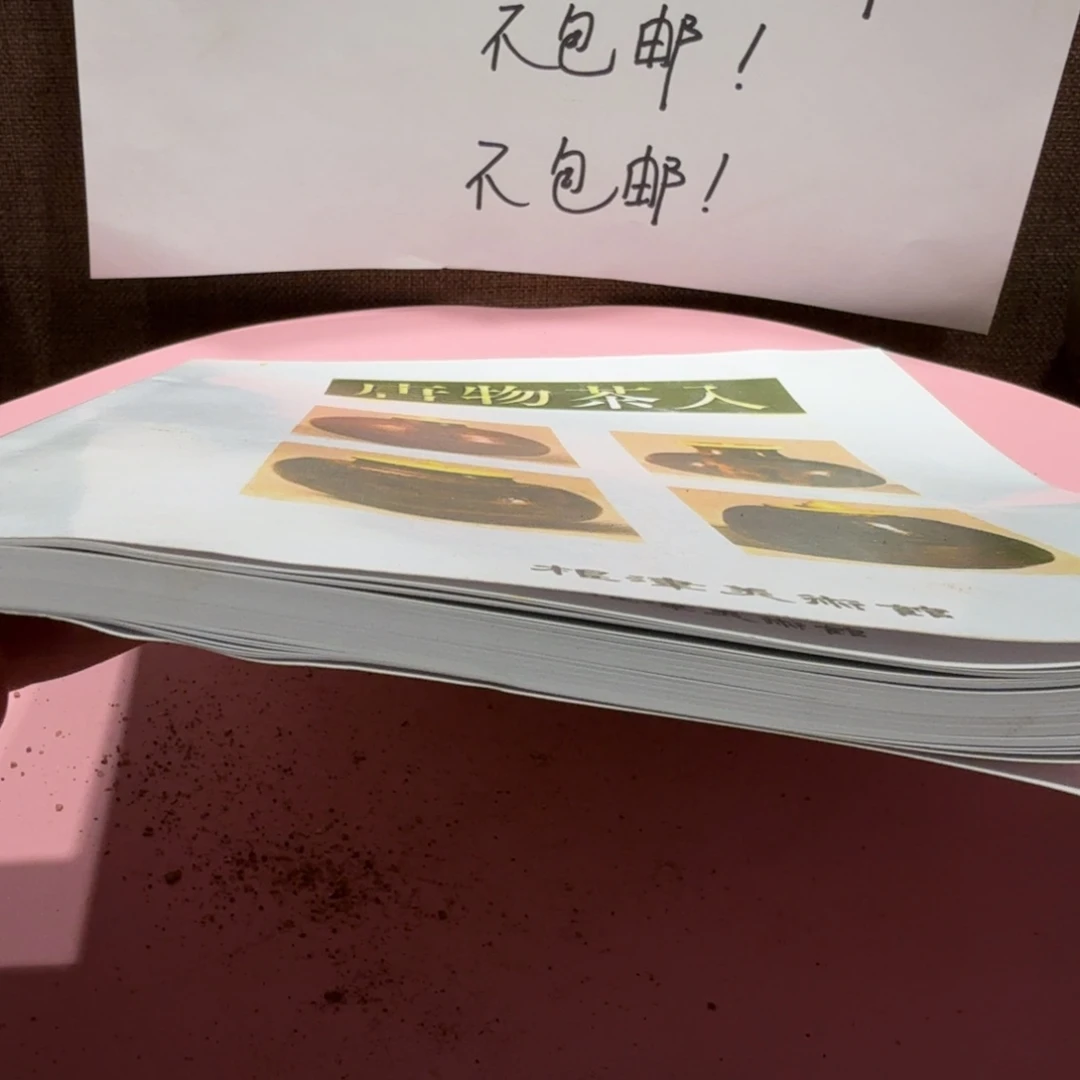 不包邮！
不包邮！
唐物茶入
根津美術館